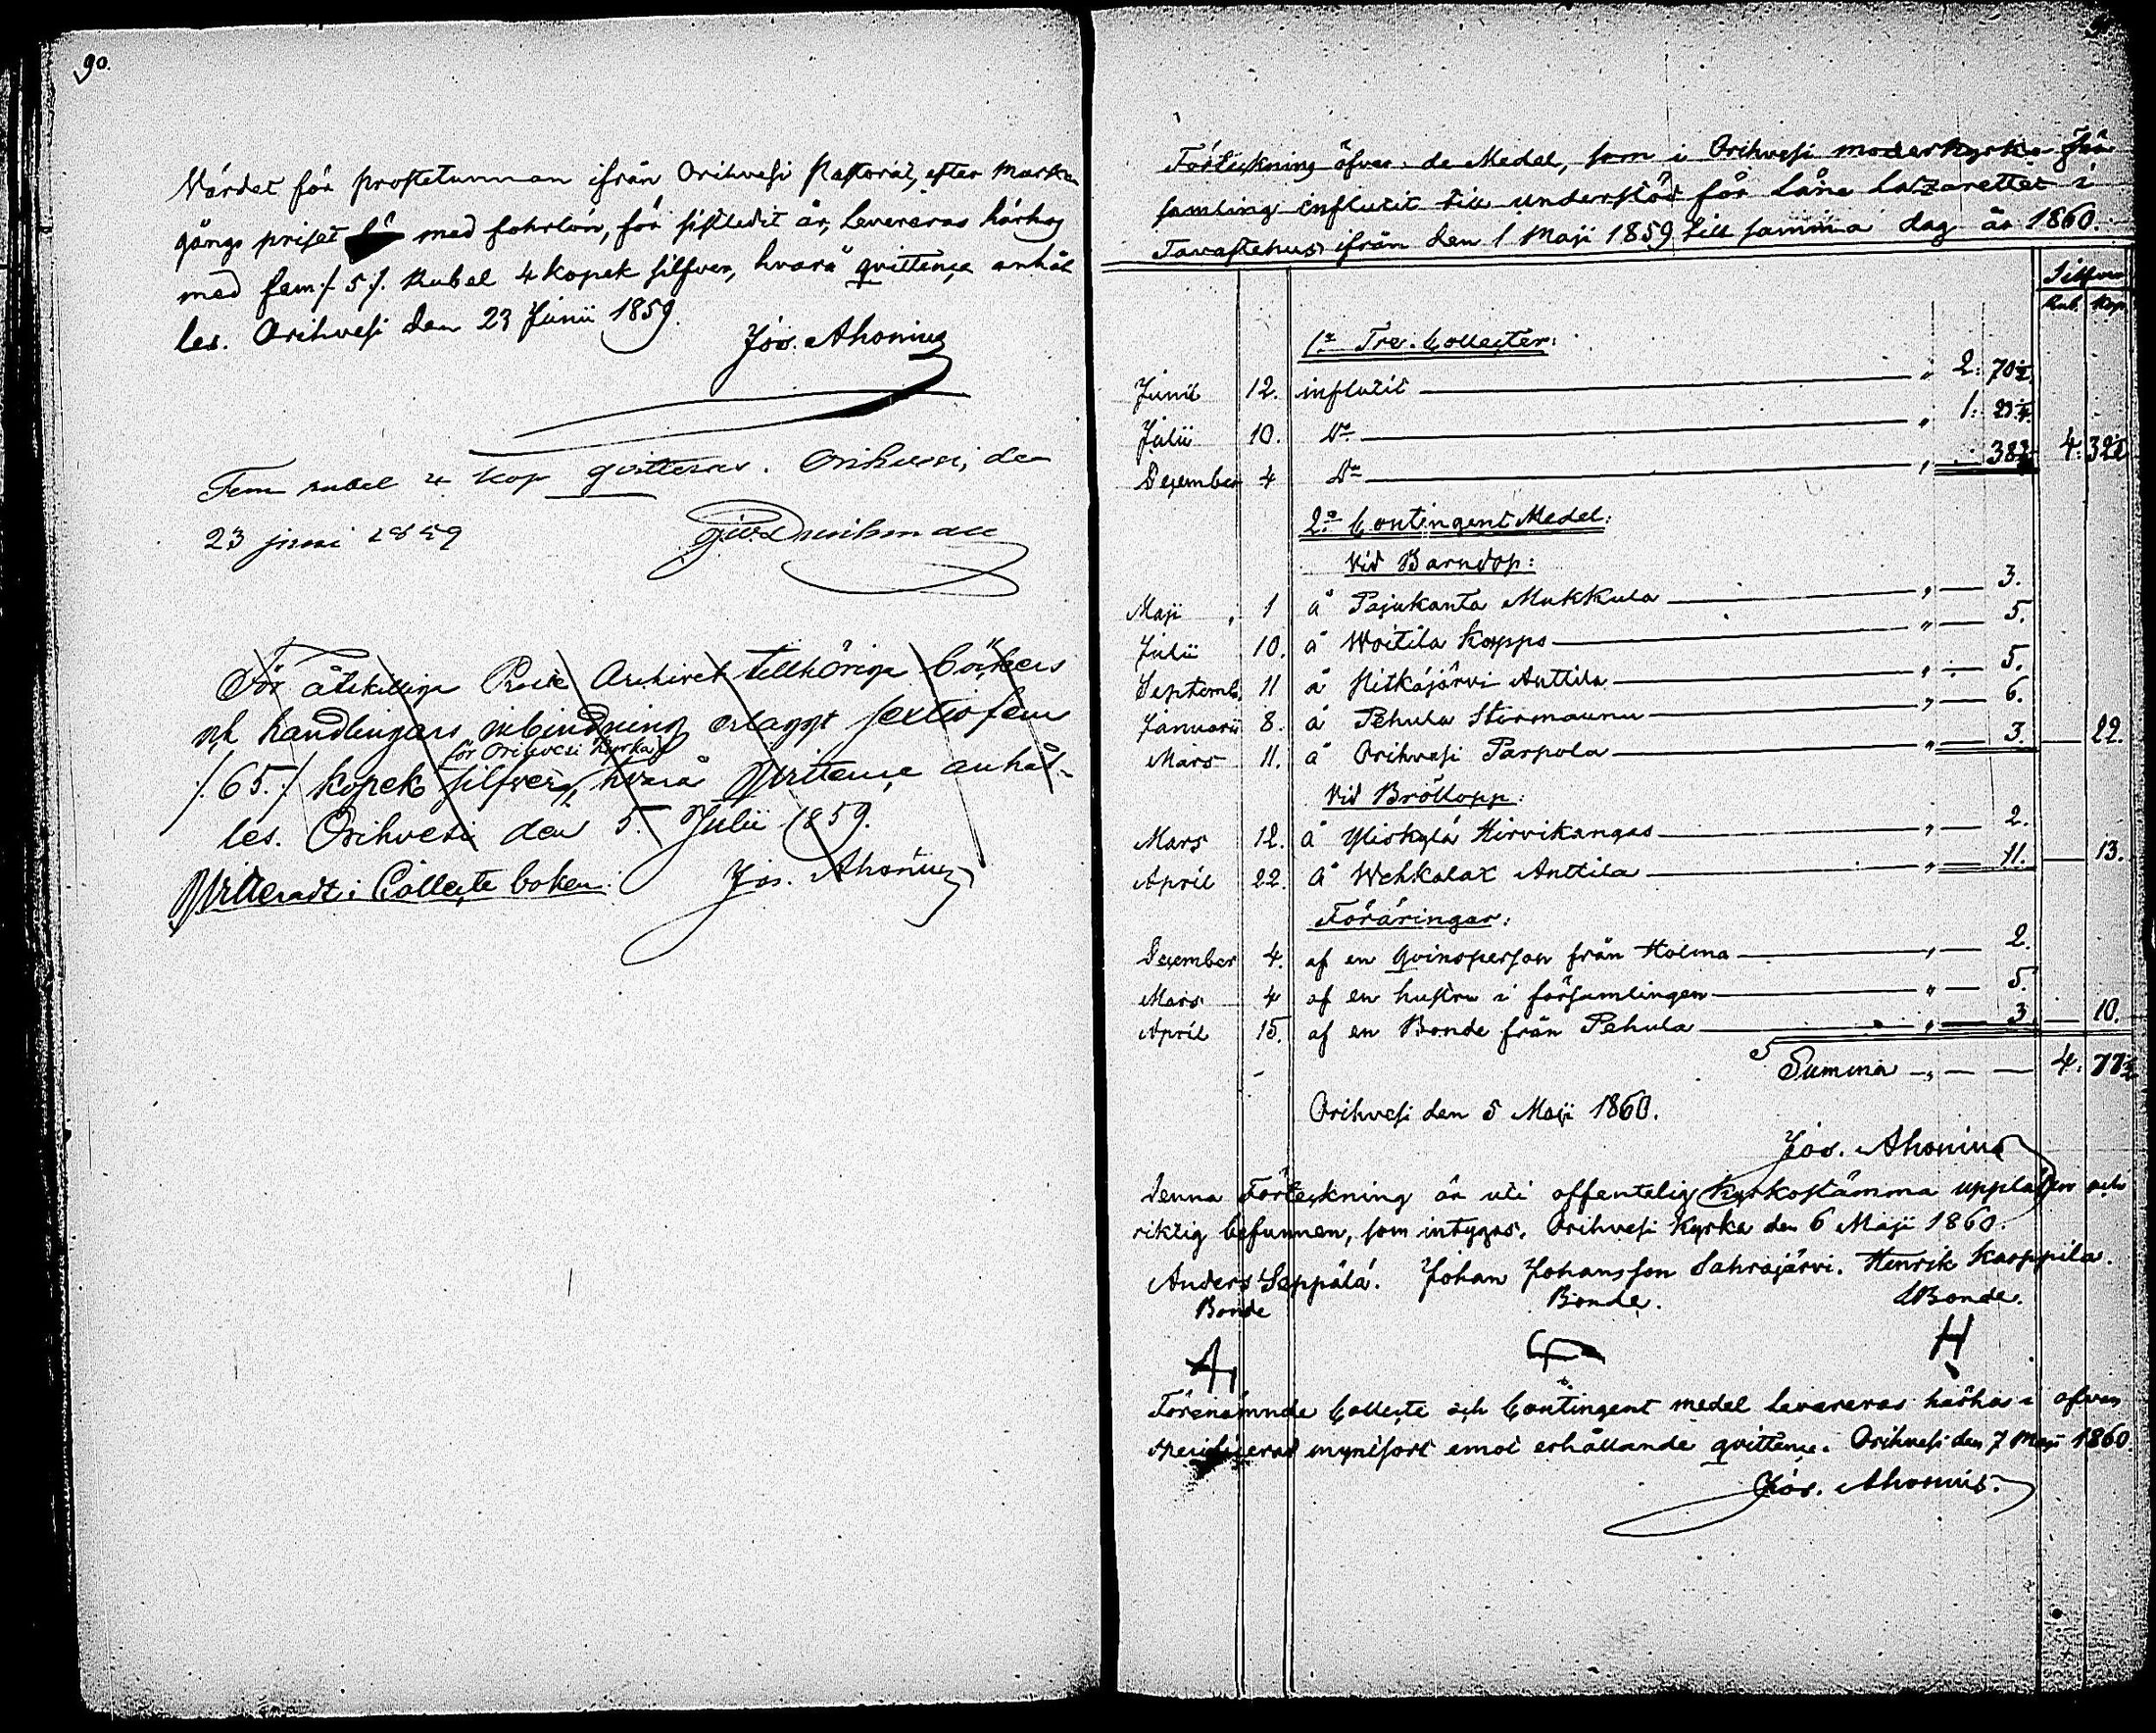 90.
Värdet för prostetunnan ifrån Orihvesi Pastorat, efter marke-
gångs priset med fohrlön, för sistledit år, levereras härhos
med fem /. 5 ./. Rubel 4 kopek silfver, hvarå qvittençe anhål
les. Orihvesi den 23 Junii 1859.
Jos. Ahonius
Fem rubel 4 kop qvitteras. Orihvesi, den
23 juni 1859
För åtskillige Archivet tillhörige böckers
och handlingars inbindning erlagt sextiofem
för Orihvesi Kyrka
/. 65. / kopek silfver, hvarå Qvittençe anhål-
les. Orihvesi den 5. Julii 1859.
Qvitteradt i Colleçte boken. Jos. Ahonius
Förteckning öfver de Medel, som i Orihvesi moderkyrko För
samling influtit till understöd för Läne Latzarettet i
Tavastehus ifrån den 1 Maji 1859 till samma dag år 1860.
Silfver
Rub. Kop.
1o Tre Colleçter:
Junii 12. influtit — " 2. 70½.
Julii 10. Do — " 1. 23¼.
Deçember 4 Do — " 38¾ 4. 32½
2o Contingent Medel:
Vid Barndop:
Maji 1 å Pajukanta Mukkula — " — 3.
Julii 10. å Woitila Kopps — " — 5.
Septemb. 11 å Hitkäjärvi Anttila — " — 5.
Januarii 8. å Pehula Stormaunu — " — 6.
Mars 11. å Orihvesi Parpola — " — 3. — 22.
Vid Bröllopp:
Mars 12. å Yliskylä Hirvikangas — " — 2.
April 22. å Wehkalax Anttila — " — 11. — 13.
Föräringar:
Deçember 4. af en qvinsperson från Holma — " — 2.
Mars 4 af en hustru i församlingen — " — 5.
April 15. af en Bonde från Pehula — " — 3 — 10.
Summa — " — — 4. 77½
Orihvesi den 5 Maji 1860.
Jos. Ahonius
Denna Förteçkning är uti offentelig Kyrkostämma uppläsen och
riktig befunnen, som intygas. Orihvesi Kyrka den 6 Maji 1860.
Anders Seppälä. Johan Johansson Sahrajärvi. Henrik Karppila.
Bonde Bonde. Bonde.
A H
Förenämnde Colleçte och Contingent medel levereras härhos i ofvan
speçifiçerad myntsort emot erhållande qvittençe. Orihvesi den 7 Maji 1860.
Jos. Ahonius.